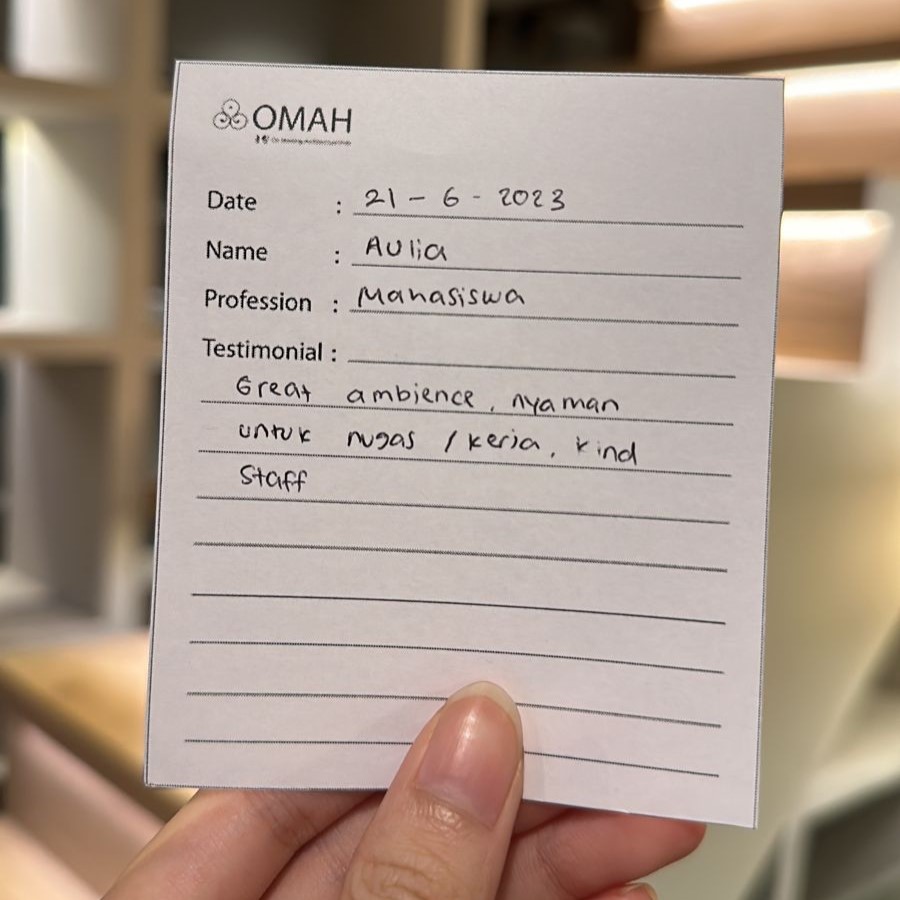 OMAH
Date : 21 - 6 - 2023
Name : Aulia
Profession : Mahasiswa
Testimonial :
Great ambience, nyaman
untuk nugas / kerja, kind
Staff